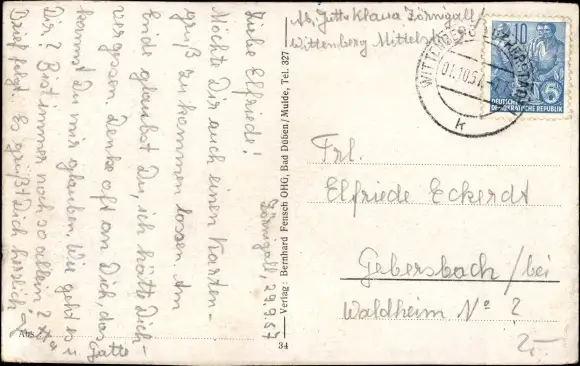 Zörnigall, 29.9.57
Liebe Elfriede!
Möchte Dir auch einen Karten-
gruß zukommen lassen. Am
Ende glaubst Du, ich hätte Dich
vergessen. Denke oft an Dich, das
kannst Du mir glauben. Wie geht es
Dir? Bist immer noch so allein?
Brief folgt. Es grüßt Dich herzlich
Jutta
Verlag: Bernhard Fensch OHG, Bad Düben/Mulde, Tel. 327
34
Ab. Jutta Klaua Zörnigall
Wittenberg Mittelstr.
WITTENBERG
01.10.57
k
10
5
DEUTSCHE
DEMOKRATISCHE REPUBLIK
Frl.
Elfriede Eckerdt
Gebersbach/bei
Waldheim No 2
2.-